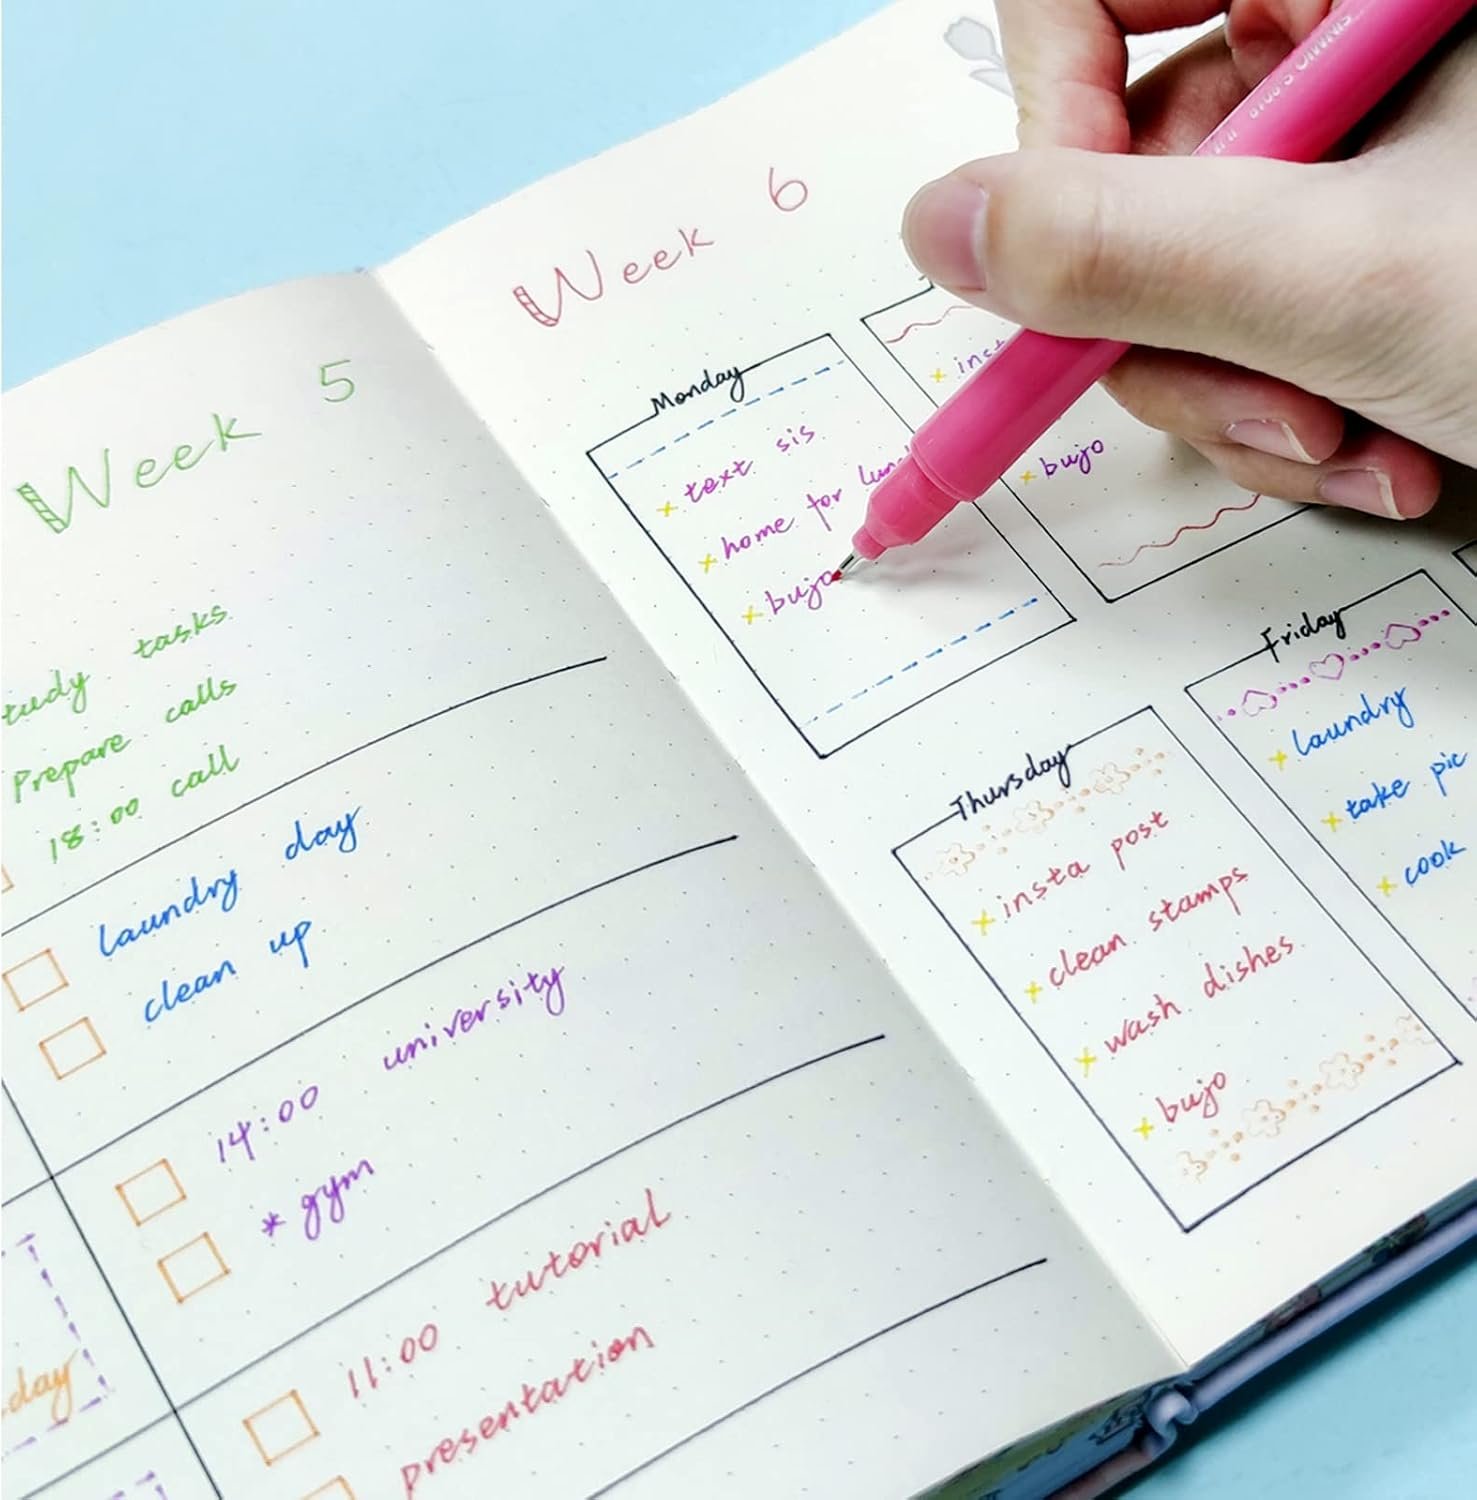 Week 5
tasks
Prepare calls
18:00 call
laundry day
clean up
14:00 university
* gym
11:00 tutorial
presentation
day
Week 6
Monday
+ text sis
+ home for
+ bujo
+ bujo
Thursday
+ insta post
+ clean stamps
+ wash dishes
+ bujo
Friday
+ laundry
+ take pic
+ cook